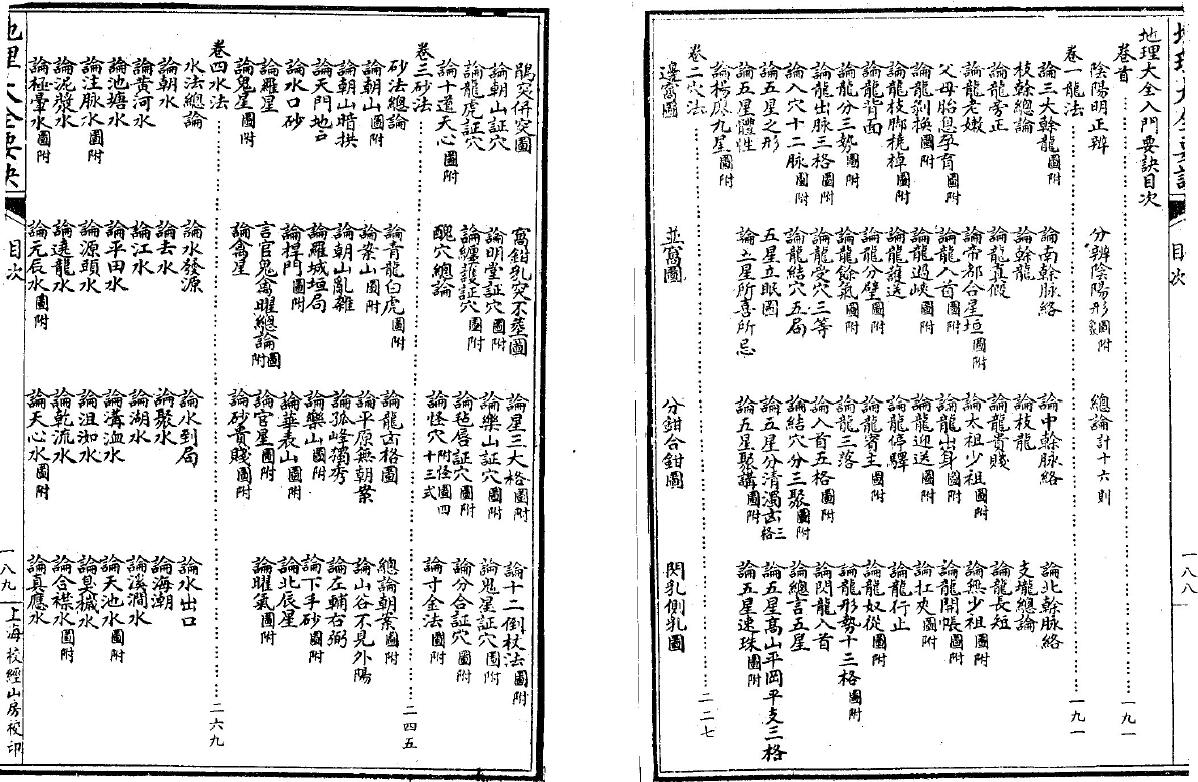 地理大全入門要訣目次
卷首 一九一
陰陽明正辨 分辨陰陽形圖附 總論計十六則
卷一龍法 一九一
論三大幹龍圖附 論南幹脈絡 論中幹脈絡 論北幹脈絡
枝幹總論 論幹龍 論枝龍 支壠總論
論龍旁正 論龍真假 論龍貴賤 論龍長短
論龍老嫩 論帝都合星垣圖附 論太祖少祖圖附 論無少祖圖附
父母胎息孕育圖附 論龍入首圖附 論龍出身圖附 論龍開帳圖附
論龍剝換圖附 論龍過峽圖附 論龍迎送圖附 論扛夾圖附
論龍枝脚橈棹圖附 論龍護送 論龍停驛 論龍行止
論龍背面 論龍分擘圖附 論龍賓主圖附 論龍奴從圖附
論龍分三勢圖附 論龍餘氣圖附 論龍三落 論龍形勢十三格圖附
論龍出脈三格圖附 論龍受穴三等 論入首五格圖附 論閃龍入首
論入穴十二脈圖附 論龍結穴五局 論結穴分三聚圖附 論總言五星
論五星之形 五星立眠圖 論五星分清濁吉三格 論五星高山平岡平支三格
論五星體性 論五星所喜所忌 論五星聚講圖附 論五星連珠圖附
論楊廖九星圖附
卷二穴法 二二七
邊窩圖 並窩圖 分鉗合鉗圖 閃乳側乳圖
目次 一八八
鶻突併突圖 窩鉗乳突不葬圖 論星三大格圖附 論十二倒杖法圖附
論朝山証穴 論明堂証穴圖附 論樂山証穴圖附 論鬼星証穴圖附
論龍虎証穴 論纏護証穴圖附 論毡唇証穴圖附 論分合証穴圖附
論十道天心圖附 醜穴總論 論怪穴附怪圖四十三式 論寸金法圖附
卷三砂法 二四五
砂法總論 論青龍白虎圖附 論龍虎吉格圖附 總論朝案圖附
論朝山圖附 論案山圖附 論平原無朝案 論山谷不見外陽
論朝山暗拱 論朝山亂雜 論孤峰獨秀 論左輔右弼
論天門地戶 論羅城垣局 論樂山圖附 論下手砂圖附
論水口砂 論捍門圖附 論華表山圖附 論北辰星
論羅星圖附 言官鬼禽曜總論圖附 論官星圖附 論曜氣圖附
論鬼星圖附 論禽星 論砂貴賤圖附
卷四水法 二六九
水法總論 論水發源 論水到局 論水出口
論朝水 論去水 論聚水 論海潮
論黃河水 論江水 論湖水 論溪澗水
論池塘水 論平田水 論溝洫水 論天池水圖附
論注脉水圖附 論源頭水 論沮洳水 論臭穢水
論泥漿水 論遶龍水 論乾流水 論合襟水圖附
論極暈水圖附 論元辰水圖附 論天心水圖附 論真應水
地理大全要訣 目次 一八九 上海校經山房校印